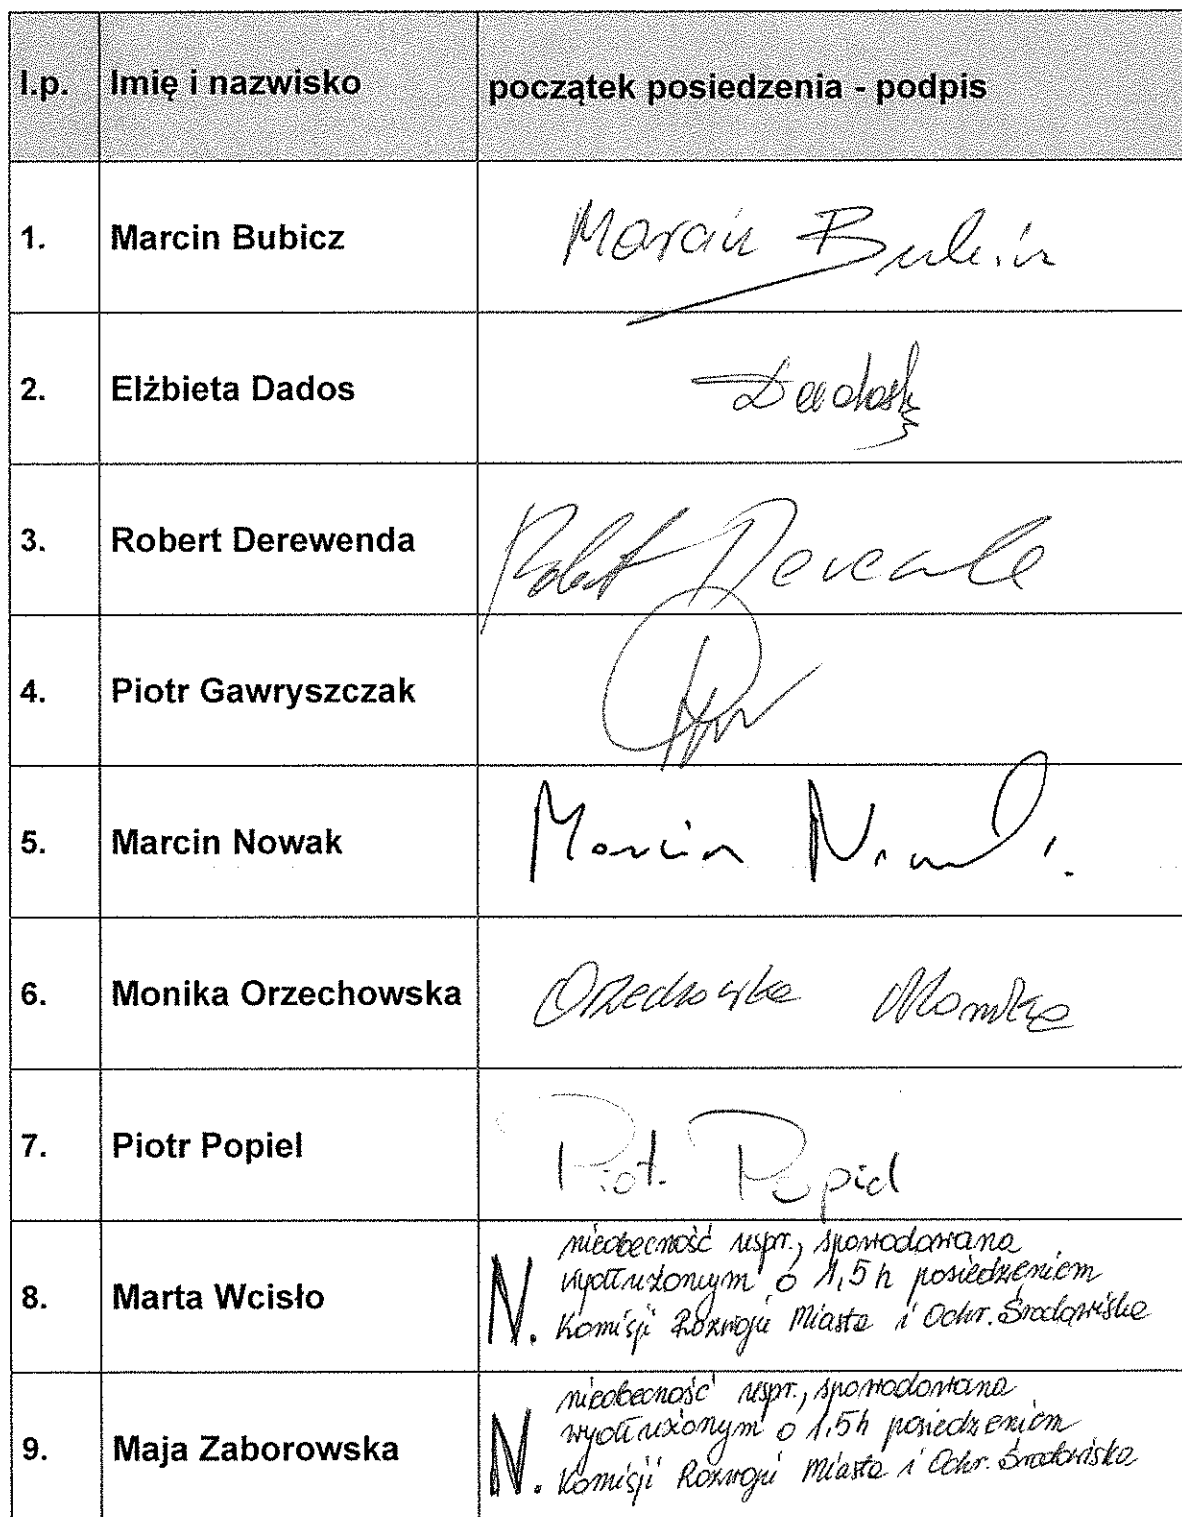 l.p. Imię i nazwisko początek posiedzenia - podpis
1. Marcin Bubicz Marcin Bubicz
2. Elżbieta Dados
3. Robert Derewenda Robert
4. Piotr Gawryszczak
5. Marcin Nowak Marcin Nowak
6. Monika Orzechowska Orzechowska Monika
7. Piotr Popiel Piotr Popiel
niedbecność uspr., spowodowana
wydłużonym o 1,5 h posiedzeniem
8. Marta Wcisło N. Komisji Rozwoju Miasta i Ochr. Środowiska
nieobecność uspr., spowodowana
wydłużonym o 1,5h posiedzeniem
9. Maja Zaborowska N. Komisji Rozwoju Miasta i Ochr. Środowiska